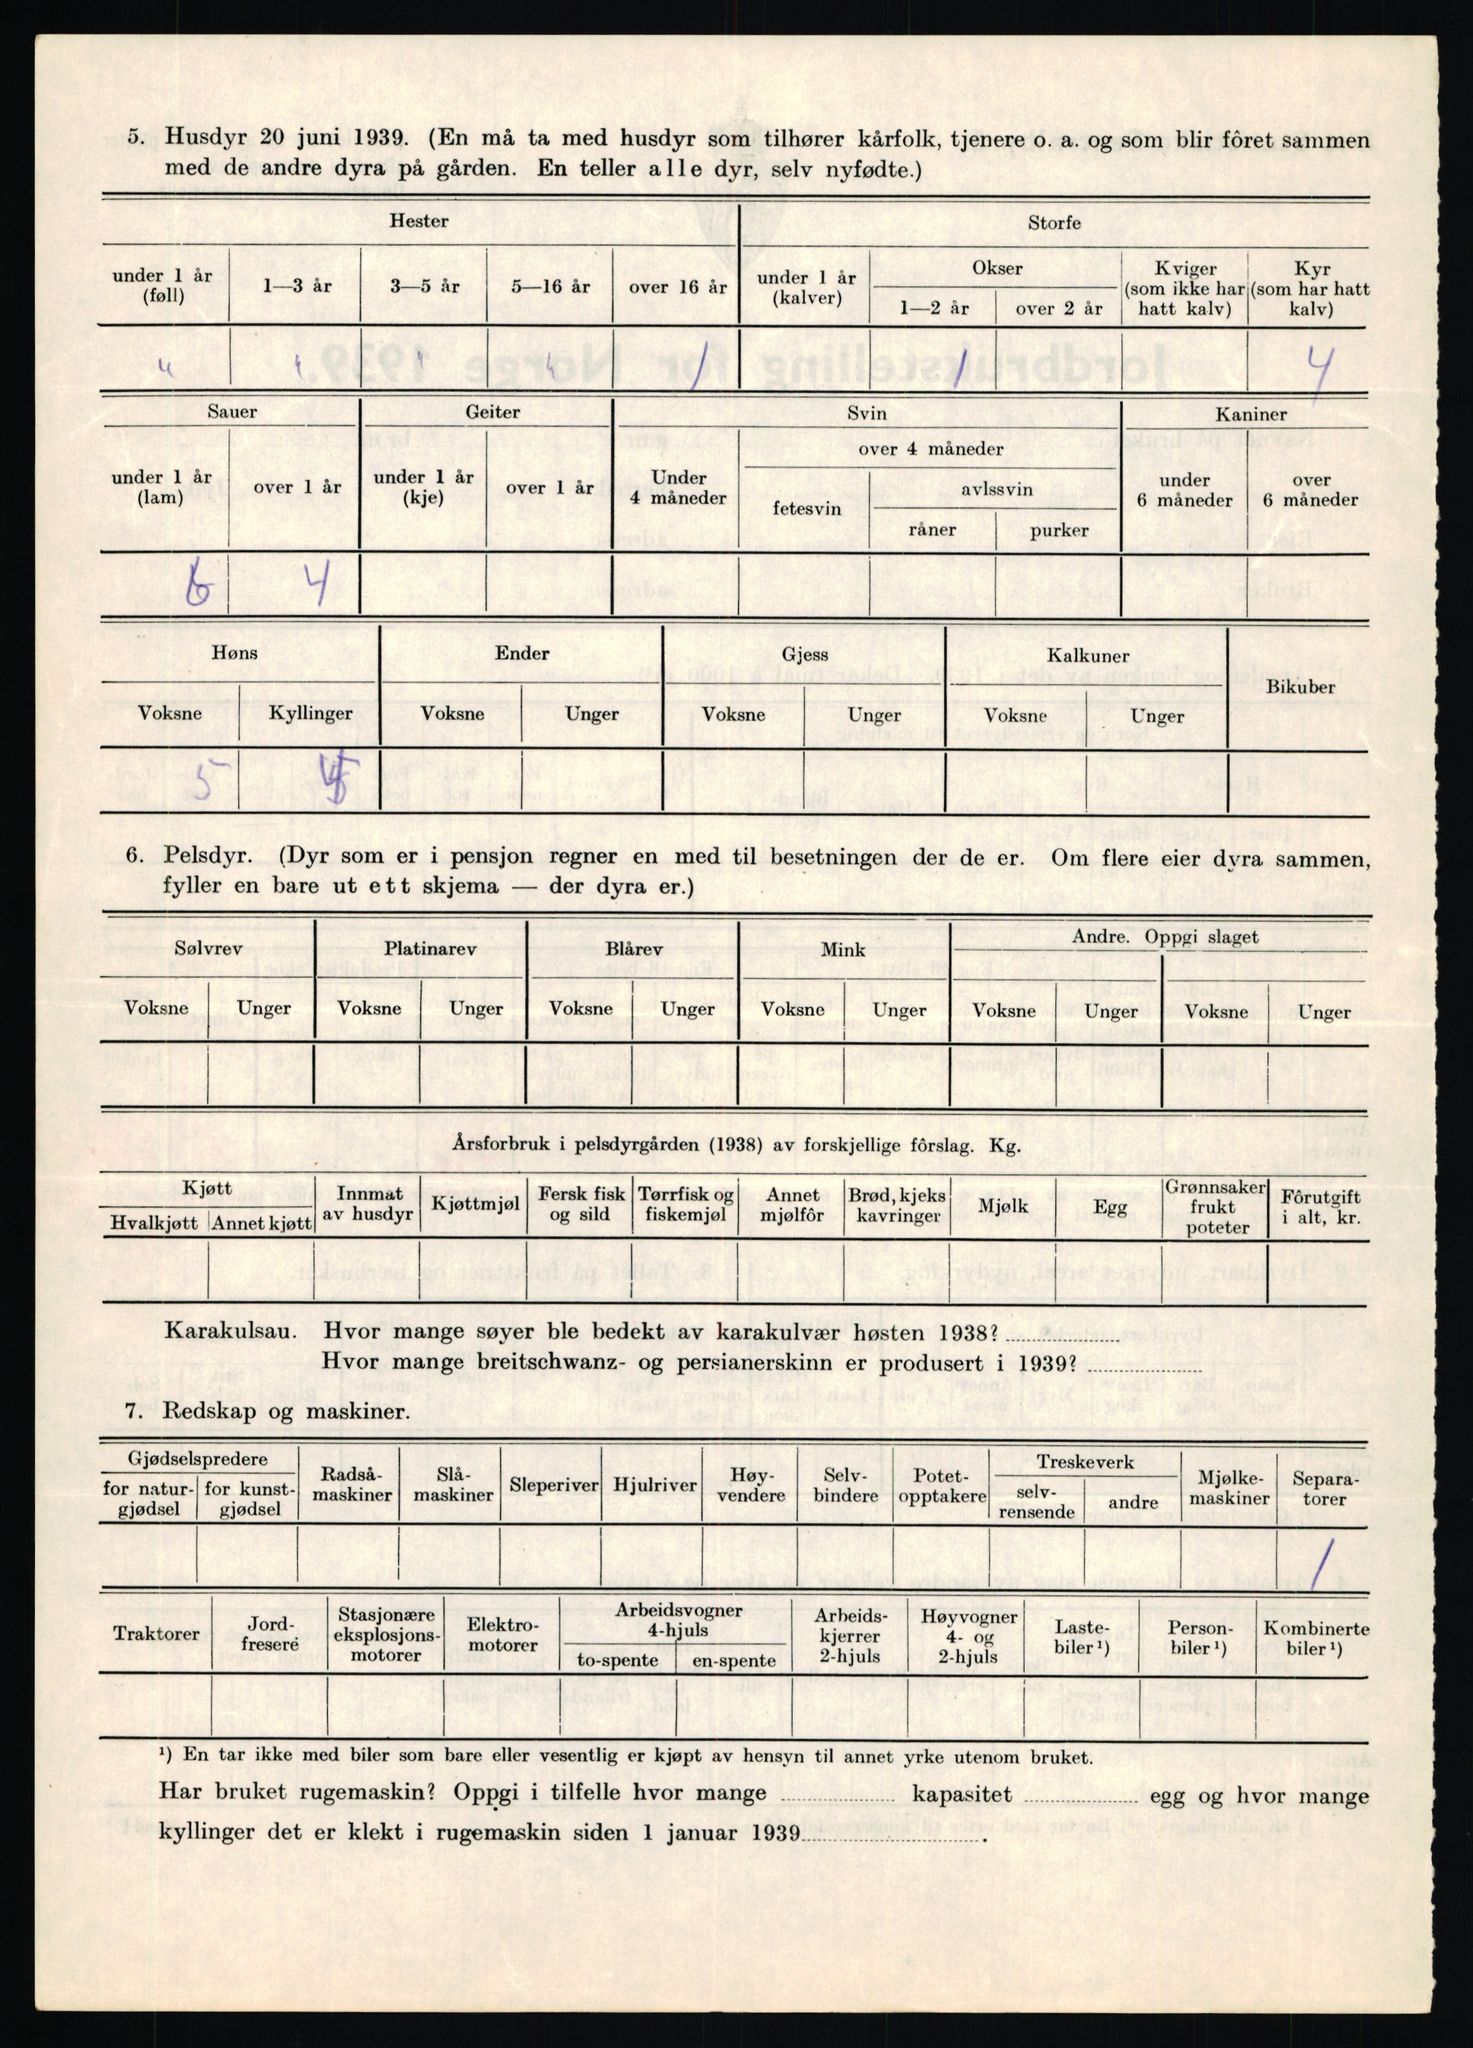 5. Husdyr 20 juni 1939. (En må ta med husdyr som tilhører kårfolk, tjenere o. a. og som blir fôret sammen
med de andre dyra på gården. En teller alle dyr, selv nyfødte.)
Hester Storfe
under 1 år (føll) 1—3 år 3—5 år 5—16 år over 16 år under 1 år (kalver) Okser 1—2 år over 2 år Kviger (som ikke har hatt kalv) Kyr (som har hatt kalv)
" " " " 1 1 4
Sauer Geiter Svin Kaniner
under 1 år (lam) over 1 år under 1 år (kje) over 1 år Under 4 måneder over 4 måneder fetesvin avlssvin råner purker under 6 måneder over 6 måneder
6 4
Høns Ender Gjess Kalkuner Bikuber
Voksne Kyllinger Voksne Unger Voksne Unger Voksne Unger
5
6. Pelsdyr. (Dyr som er i pensjon regner en med til besetningen der de er. Om flere eier dyra sammen,
fyller en bare ut ett skjema — der dyra er.)
Sølvrev Platinarev Blårev Mink Andre. Oppgi slaget
Voksne Unger Voksne Unger Voksne Unger Voksne Unger Voksne Unger Voksne Unger
Årsforbruk i pelsdyrgården (1938) av forskjellige fôrslag. Kg.
Kjøtt Hvalkjøtt Annet kjøtt Innmat av husdyr Kjøttmjøl Fersk fisk og sild Tørrfisk og fiskemjøl Annet mjølfôr Brød, kjeks kavringer Mjølk Egg Grønnsaker frukt poteter Fôrutgift i alt, kr.
Karakulsau. Hvor mange søyer ble bedekt av karakulvær høsten 1938?
Hvor mange breitschwanz- og persianerskinn er produsert i 1939?
7. Redskap og maskiner.
Gjødselspredere for natur-gjødsel for kunst-gjødsel Radså-maskiner Slå-maskiner Sleperiver Hjulriver Høy-vendere Selv-bindere Potet-opptakere Treskeverk selv-rensende andre Mjølke-maskiner Separa-torer
1
Traktorer Jord-fresere Stasjonære eksplosjons-motorer Elektro-motorer Arbeidsvogner 4-hjuls to-spente en-spente Arbeids-kjerrer 2-hjuls Høyvogner 4- og 2-hjuls Laste-biler¹) Person-biler¹) Kombinerte biler¹)
¹) En tar ikke med biler som bare eller vesentlig er kjøpt av hensyn til annet yrke utenom bruket.
Har bruket rugemaskin? Oppgi i tilfelle hvor mange kapasitet egg og hvor mange
kyllinger det er klekt i rugemaskin siden 1 januar 1939.